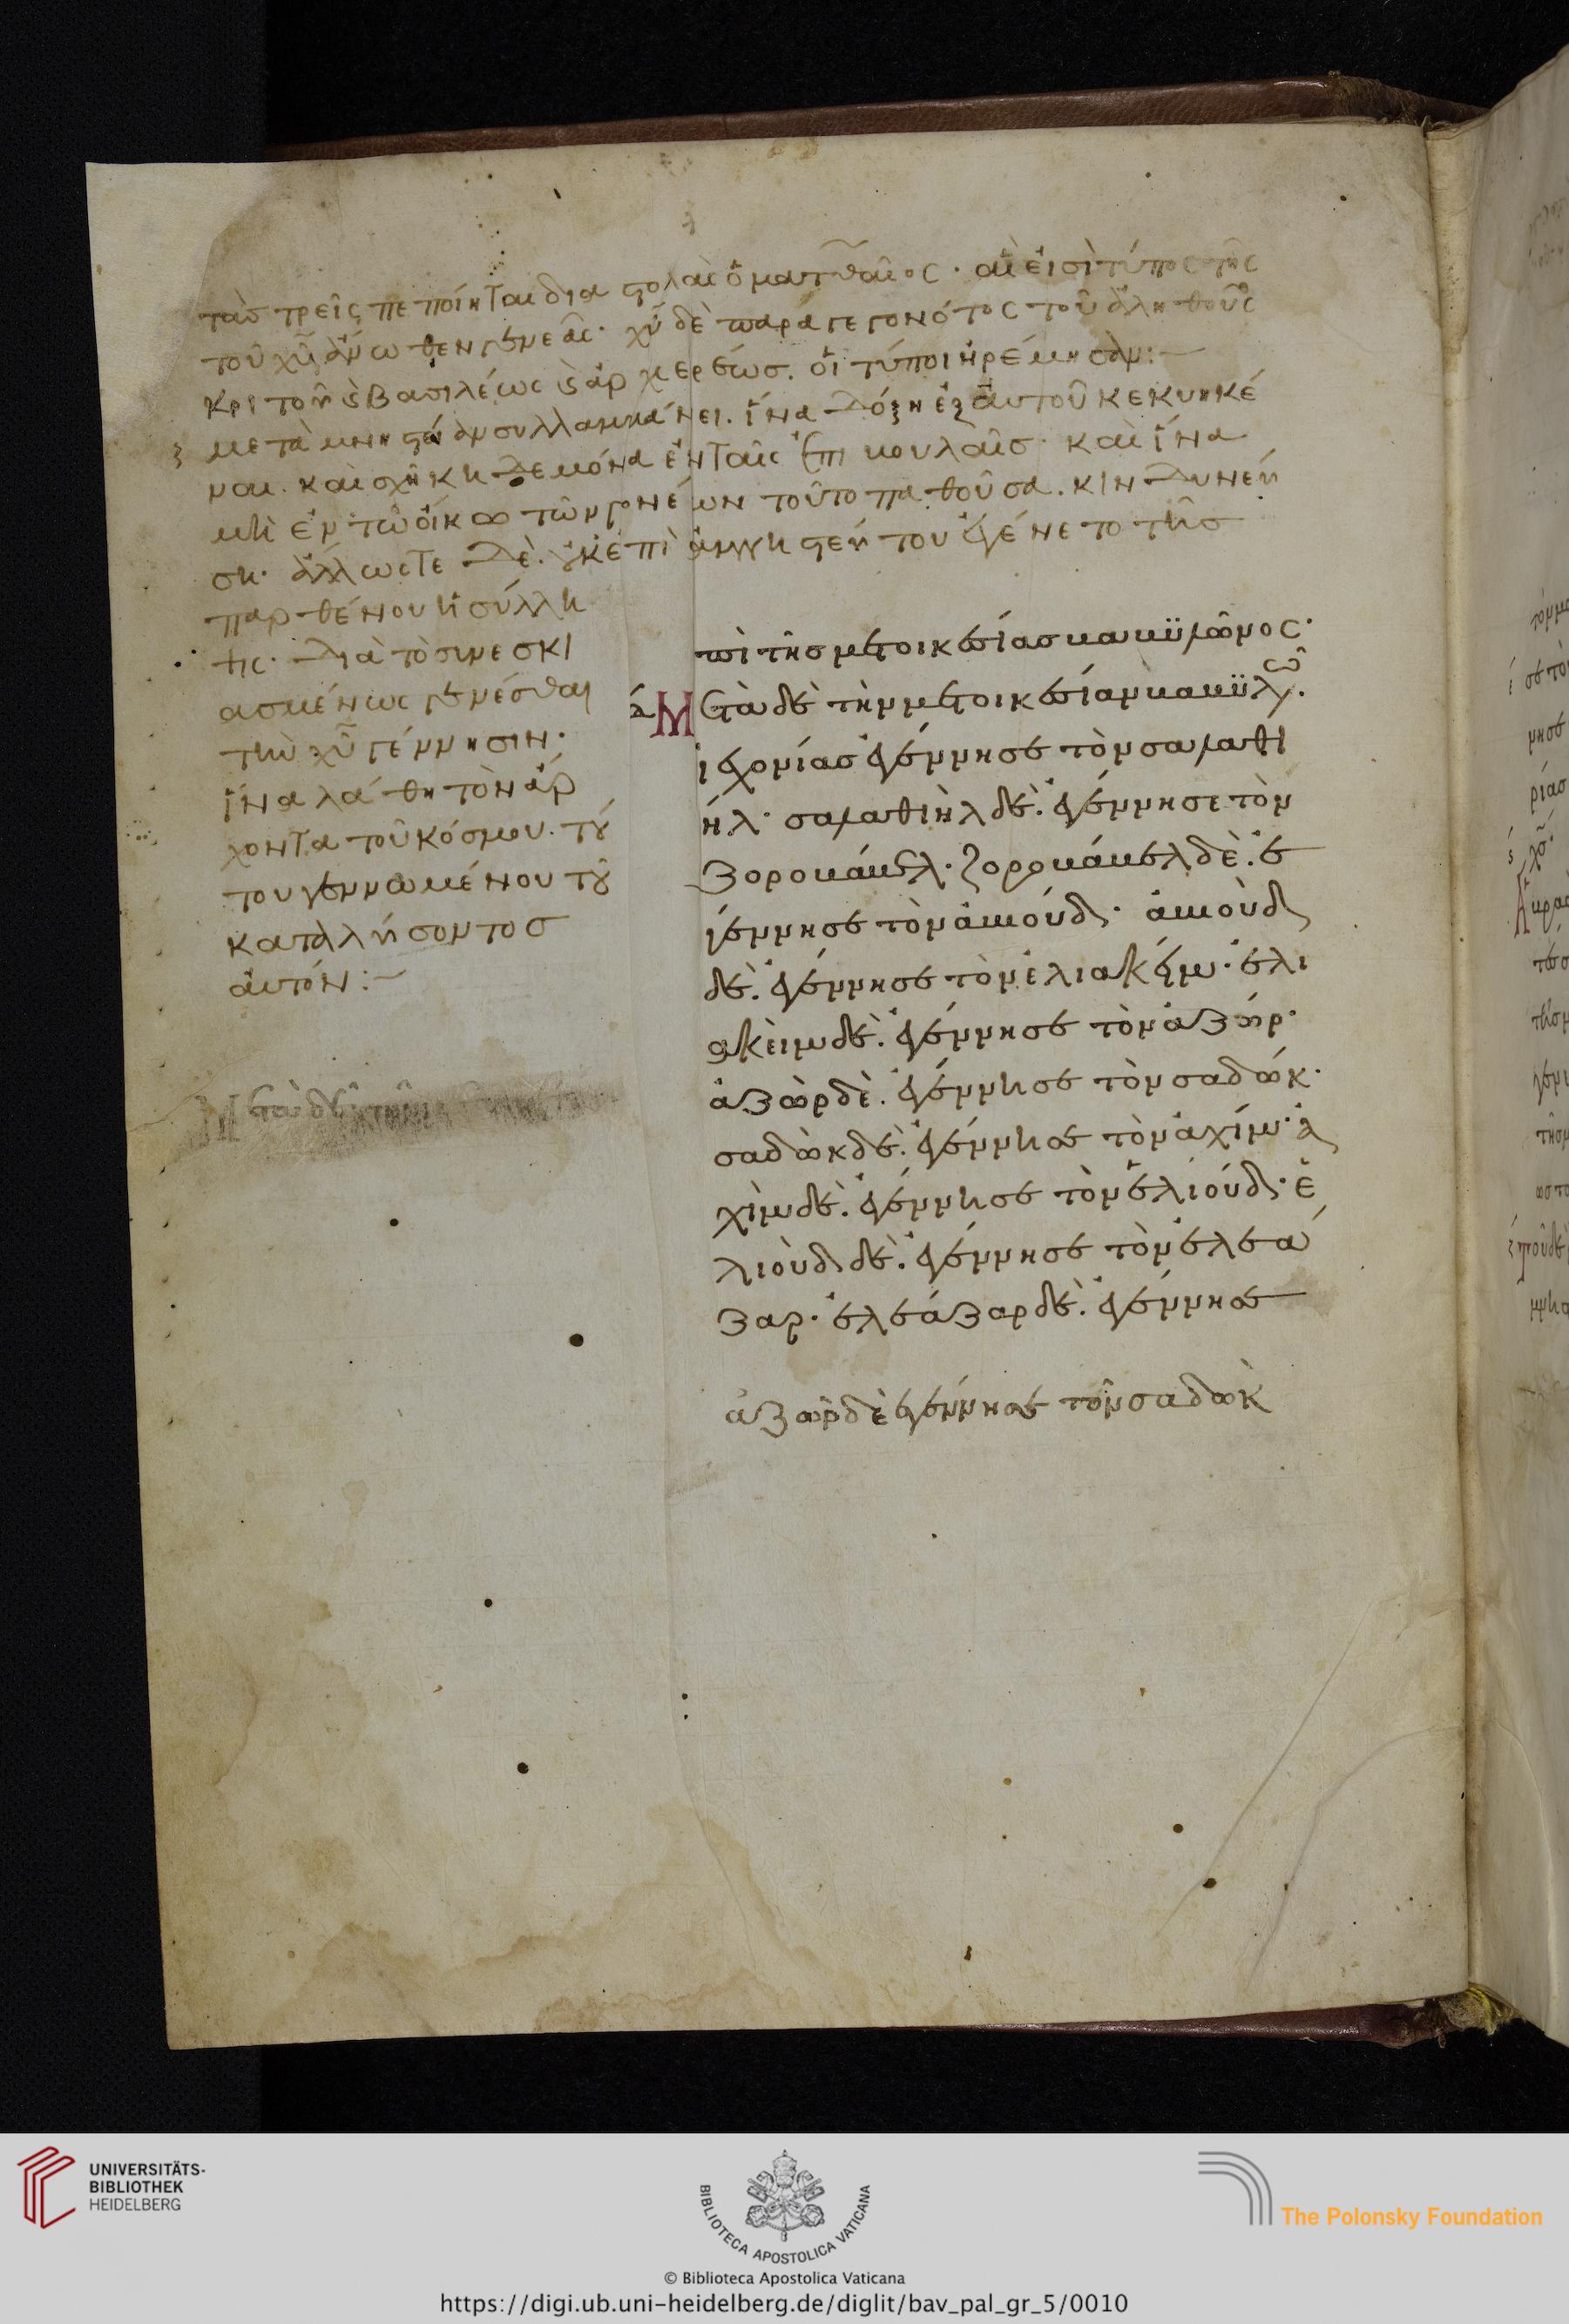 τὰς τρεῖς πεποίηται διαστολὰς ὁ ματθαῖος· αἳ εἰσὶ τύπος τῆς
τοῦ χυ ἄνωθεν γενεᾶς· χυ δὲ παραγεγονότος τοῦ ἀληθοῦς
κριτοῦ ϗ βασιλέως ϗ ἀρχιερέως. οἱ τύποι ἠρέμησαν:~
μετὰ μνηστείαν συλλαμβάνει. ἵνα δόξη ἐξ αὐτοῦ κεκυηκέ
ναι. καὶ σχῆ κηδεμόνα ἐν ταῖς ἐπιβουλαῖς· καὶ ἵνα
μὴ ἐν τῶ οἴκω τῶν γονέων τοῦτο παθοῦσα. κινδυνεύ
ση· ἄλλωστε δὲ. οὐκ ἐπὶ ἀμνηστεύτου ἐγένετο τῆς
παρθένου ἡ σύλλη
ψις· διὰ τὸ συνεσκι
ασμένως γενέσθαι
τὴν χυ γέννησιν·
ἵνα λάθη τὸν ἄρ
χοντα τοῦ κόσμου· τού
του γεννωμένου τοῦ
καταλύσοντος
αὐτόν:~
πὶ τῆς μετοικεσίας βαβυλῶνος·
Μετὰ δὲ τὴν μετοικεσίαν βαβυλῶ.
ἰεχονίας ἐγέννησε τὸν σαλαθι
ήλ· σαλαθιὴλ δὲ. ἐγέννησε τὸν
ζοροβάβελ· ζοροβάβελ δὲ. ἐ
γέννησε τὸν ἀβιούδ· ἀβιοὺδ
δὲ. ἐγέννησε τὸν ἐλιακείμ· ἐλι
ακεὶμ δὲ. ἐγέννησε τὸν ἀζώρ·
ἀζὼρ δὲ. ἐγέννησε τὸν σαδώκ·
σαδὼκ δὲ. ἐγέννησε τὸν ἀχίμ· ἀ
χὶμ δὲ. ἐγέννησε τὸν ἐλιούδ· ἐ
λιοὺδ δὲ. ἐγέννησε τὸν ἐλεά
ζαρ· ἐλεάζαρ δὲ. ἐγέννησε
Μετὰ δὲ τὴν
ἀζῶρ δὲ ἐγέννησε τὸν σαδὼκ
UNIVERSITÄTS-
BIBLIOTHEK
HEIDELBERG
BIBLIOTECA APOSTOLICA VATICANA
The Polonsky Foundation
© Biblioteca Apostolica Vaticana
https://digi.ub.uni-heidelberg.de/diglit/bav_pal_gr_5/0010